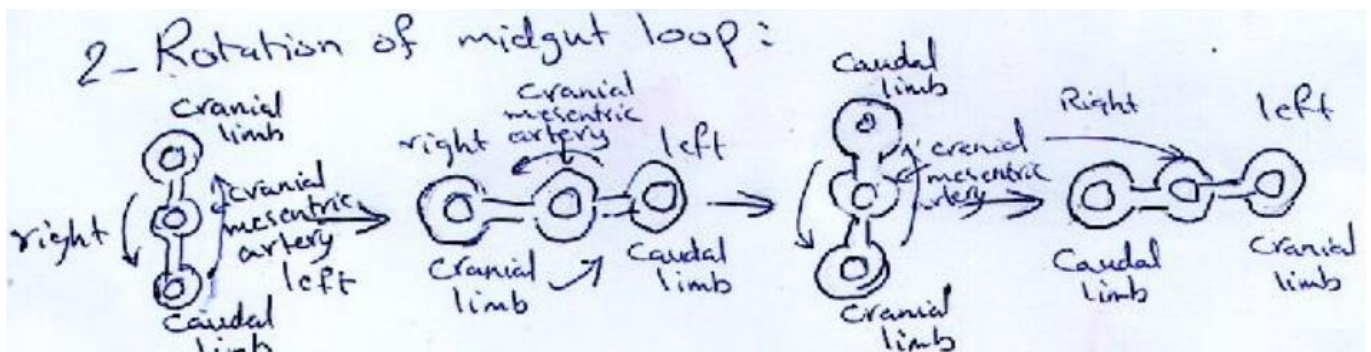 2- Rotation of midgut loop:
Cranial
limb
right
cranial
mesentric
artery
left
caudal
limb
cranial
mesentric
artery
right
left
Cranial
limb
Caudal
limb
Caudal
limb
cranial
mesentric
artery
Cranial
limb
Right
left
Caudal
limb
Cranial
limb